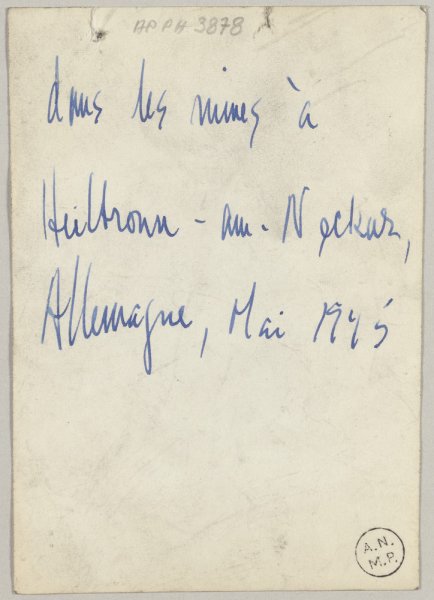 APPH 3878
dans les mines à
Heilbronn - am - Neckar,
Allemagne, Mai 1945
A.N.
M.P.